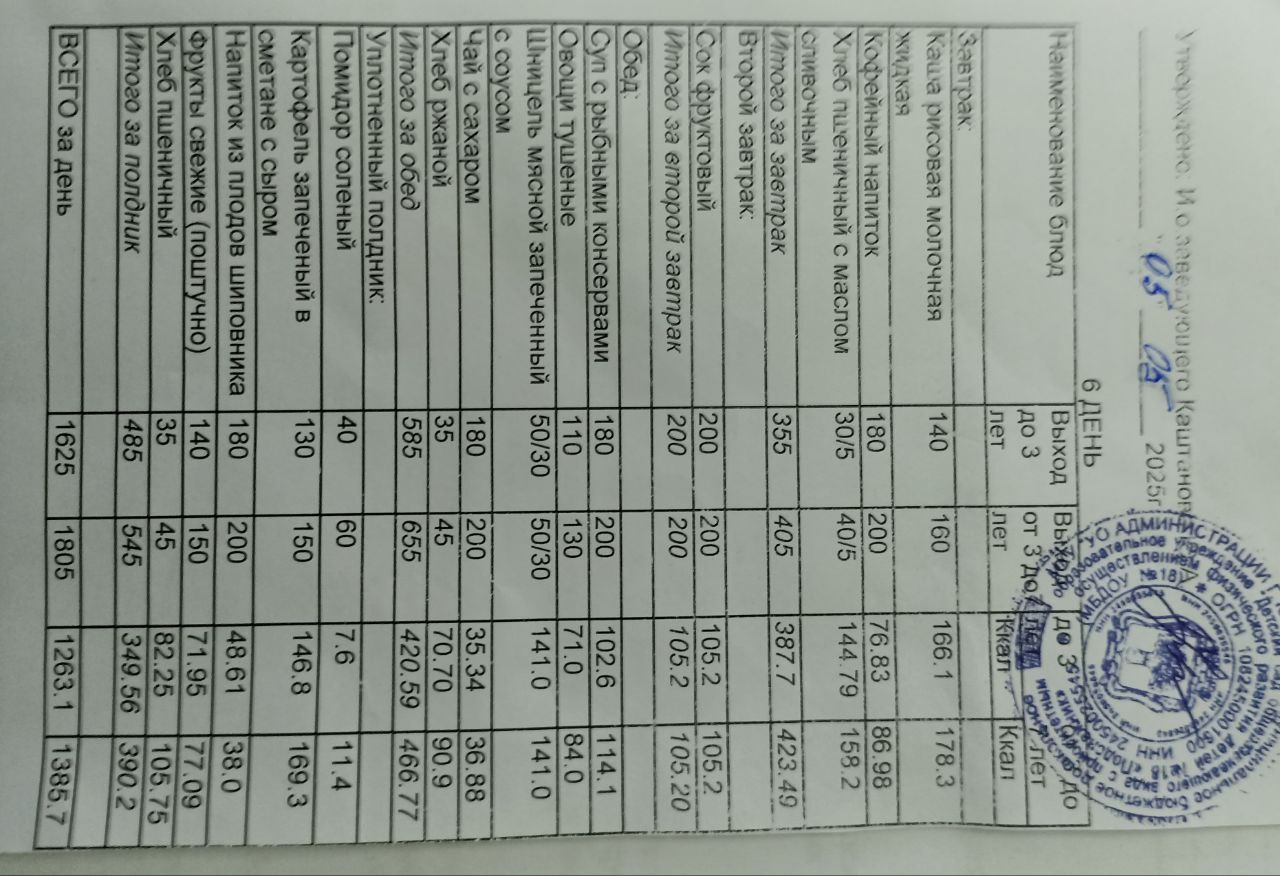 Утверждено: И.о заведующего Каштанов
"05" 05 2025г
6 ДЕНЬ
Наименование блюд Выход до 3 лет Выход от 3 до лет до 3 Ккал до лет Ккал
Завтрак:
Каша рисовая молочная жидкая 140 160 166.1 178.3
Кофейный напиток 180 200 76.83 86.98
Хлеб пшеничный с маслом сливочным 30/5 40/5 144.79 158.2
Итого за завтрак 355 405 387.7 423.49
Второй завтрак:
Сок фруктовый 200 200 105.2 105.2
Итого за второй завтрак 200 200 105.2 105.20
Обед:
Суп с рыбными консервами 180 200 102.6 114.1
Овощи тушеные 110 130 71.0 84.0
Шницель мясной запеченный с соусом 50/30 50/30 141.0 141.0
Чай с сахаром 180 200 35.34 36.88
Хлеб ржаной 35 45 70.70 90.9
Итого за обед 585 655 420.59 466.77
Уплотненный полдник:
Помидор соленый 40 60 7.6 11.4
Картофель запеченый в сметане с сыром 130 150 146.8 169.3
Напиток из плодов шиповника 180 200 48.61 38.0
Фрукты свежие (поштучно) 140 150 71.95 77.09
Хлеб пшеничный 35 45 82.25 105.75
Итого за полдник 485 545 349.56 390.2
ВСЕГО за день 1625 1805 1263.1 1385.7
УО АДМИНИСТРАЦИИ
ОГРН 1082450001590
ИНН
МБДОУ №18